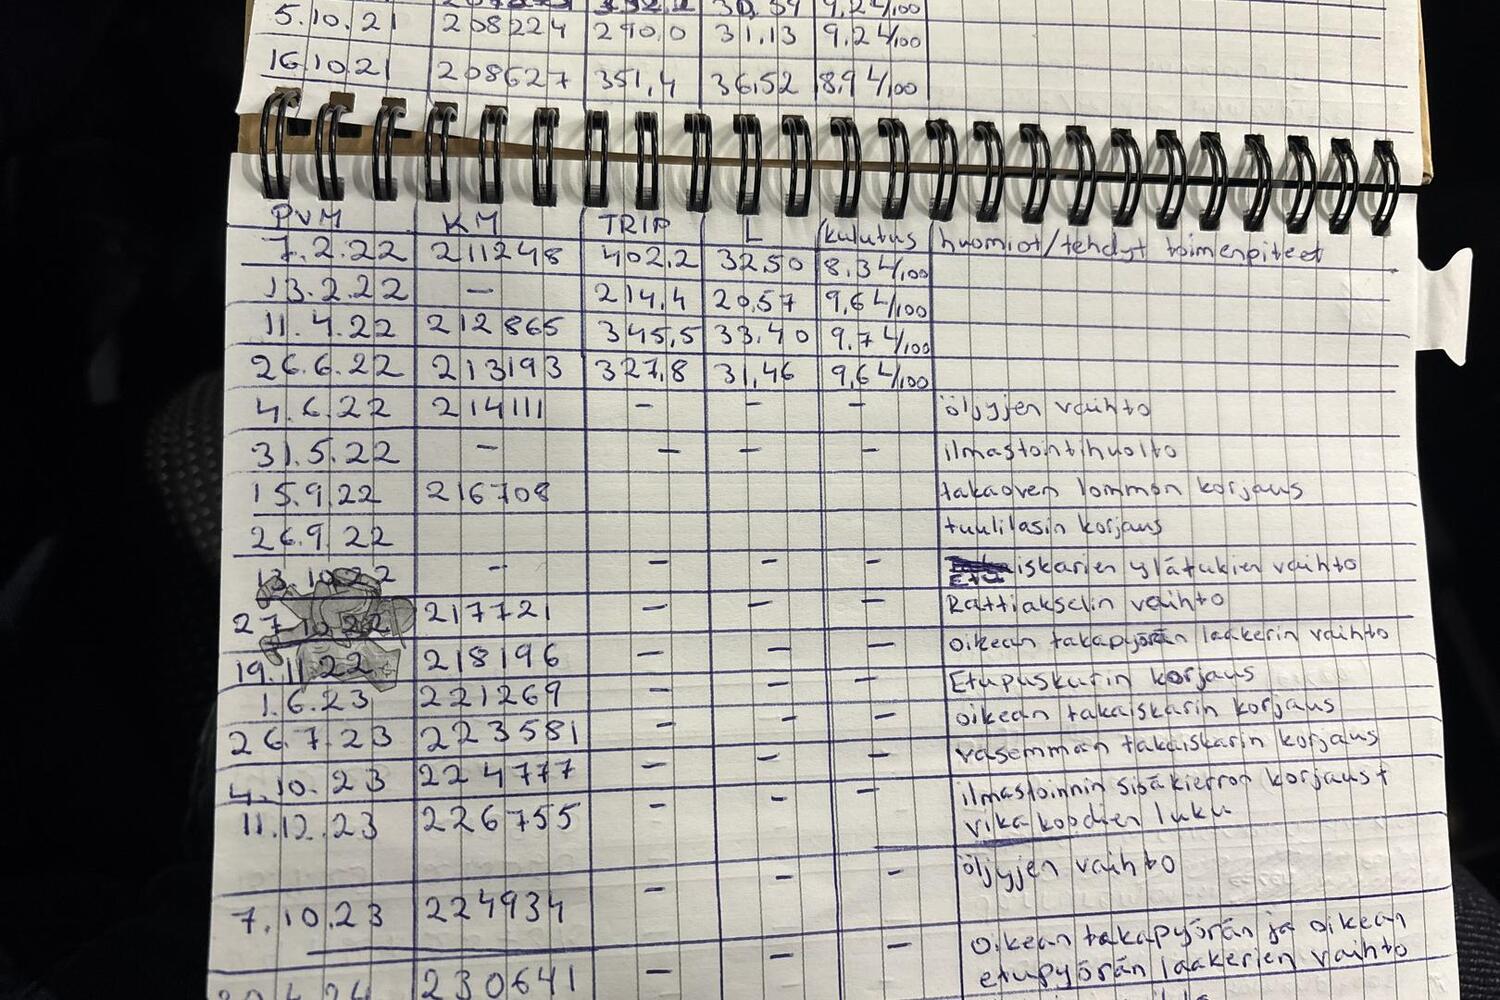 5.10.21 208224 290,0 31,13 9,2 L/100
16.10.21 208627 351,4 36,52 8,9 L/100
PVM KM TRIP L kulutus huomiot/tehdyt toimenpiteet
7.2.22 211248 402,2 32,50 8,3 L/100
13.2.22 – 214,4 20,57 9,6 L/100
11.4.22 212865 345,5 33,40 9,7 L/100
26.6.22 213193 327,8 31,46 9,6 L/100
4.6.22 214111 – – – öljyjen vaihto
31.5.22 – – – – ilmastointihuolto
15.9.22 216708 takaoven lommon korjaus
26.9.22 tuulilasin korjaus
13.10.22 – – – – Etuiskarien ylätukien vaihto
27 22 217721 – – – Rattiakselin vaihto
19.11.22 218196 – – – oikean takapyörän laakerin vaihto
1.6.23 221269 – – – Etupuskurin korjaus
26.7.23 223581 – – – oikean takaiskarin korjaus
4.10.23 224777 – – – vasemman takaiskarin korjaus
11.12.23 226755 – – – ilmastoinnin sisäkierron korjaus +
vikakoodien luku
7.10.23 224934 – – – öljyjen vaihto
230641 – – – Oikean takapyörän ja oikean
etupyörän laakerien vaihto